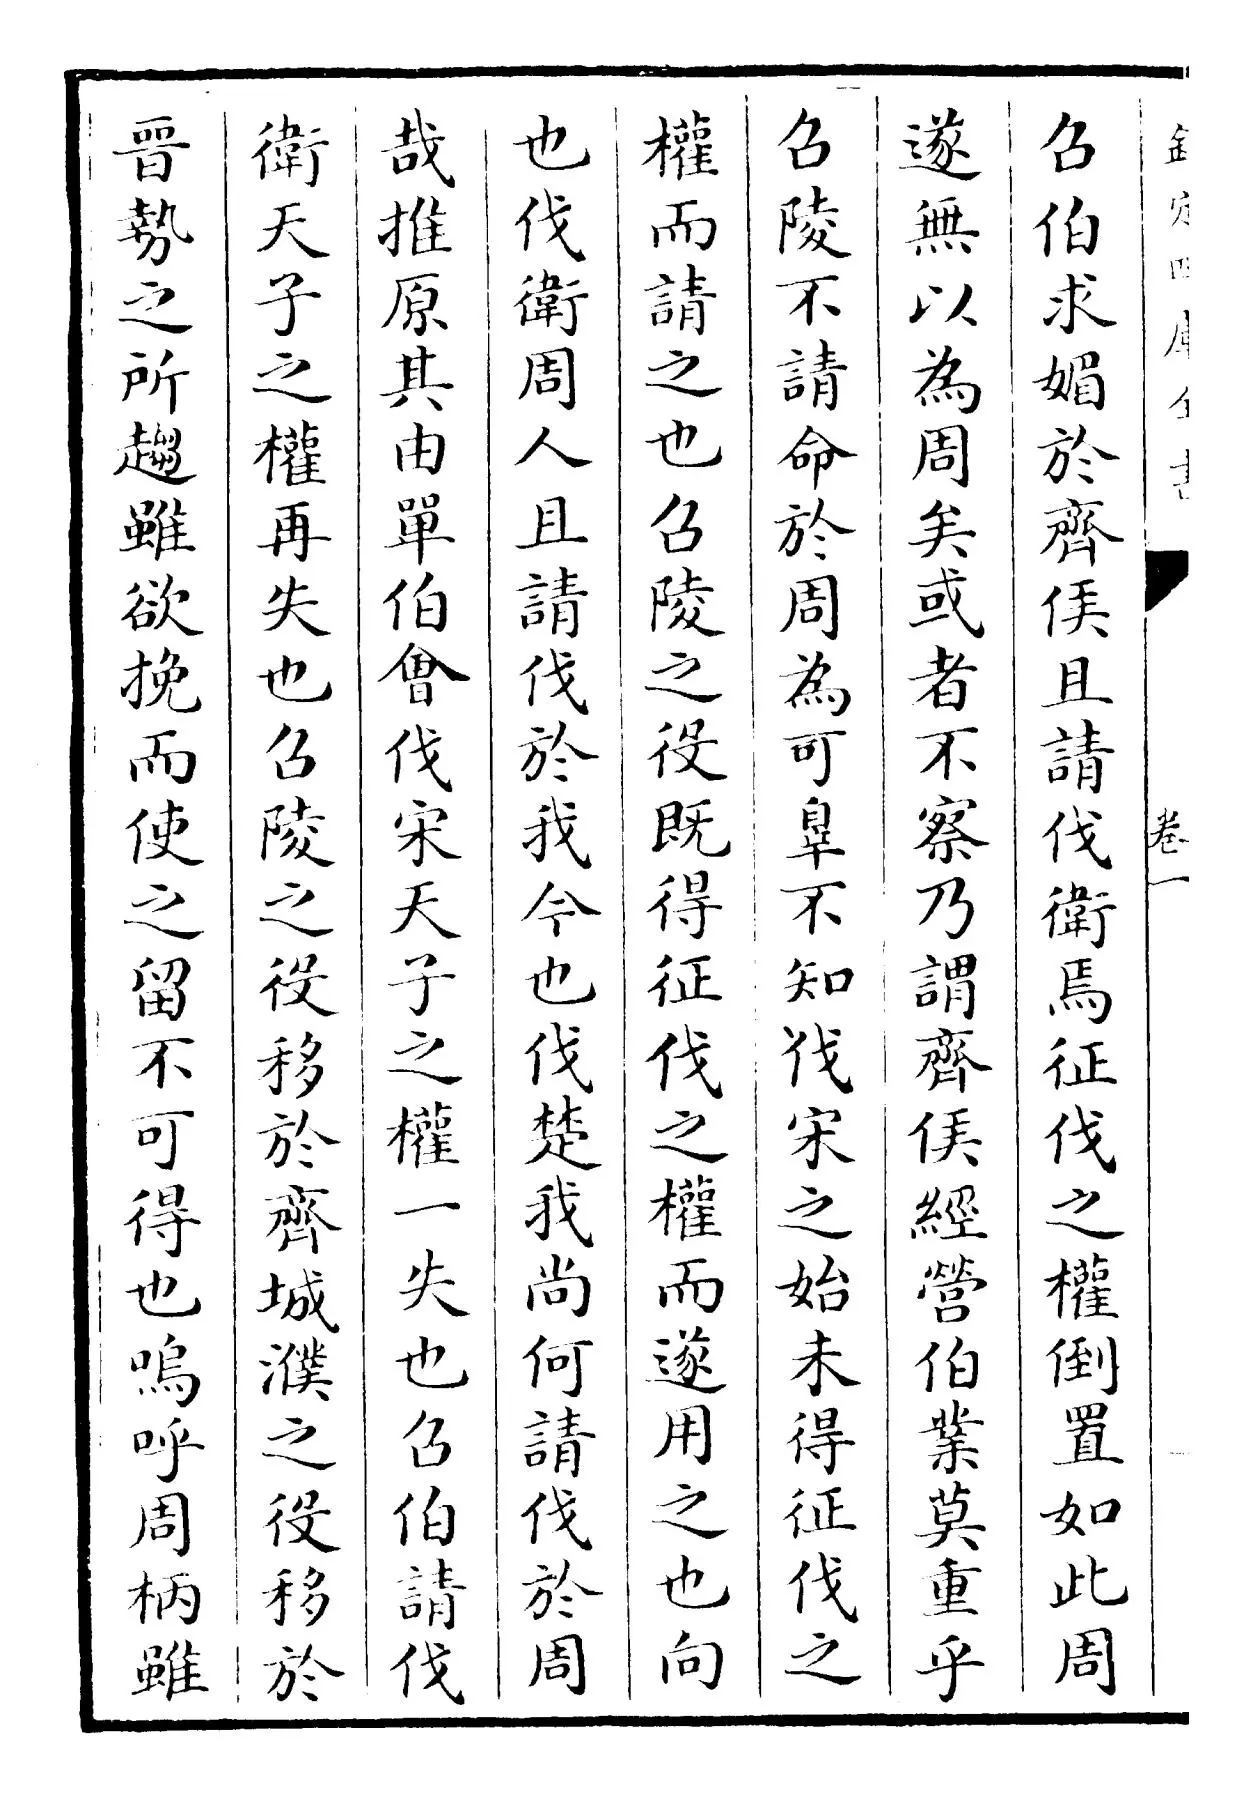 欽定四庫全書
卷一
召伯求媚於齊侯且請伐衛焉征伐之權倒置如此周
遂無以為周矣或者不察乃謂齊侯經營伯業莫重乎
召陵不請命於周為可辠不知伐宋之始未得征伐之
權而請之也召陵之役既得征伐之權而遂用之也向
也伐衛周人且請伐於我今也伐楚我尚何請伐於周
哉推原其由單伯會伐宋天子之權一失也召伯請伐
衛天子之權再失也召陵之役移於齊城濮之役移於
晉勢之所趨雖欲挽而使之留不可得也嗚呼周柄雖